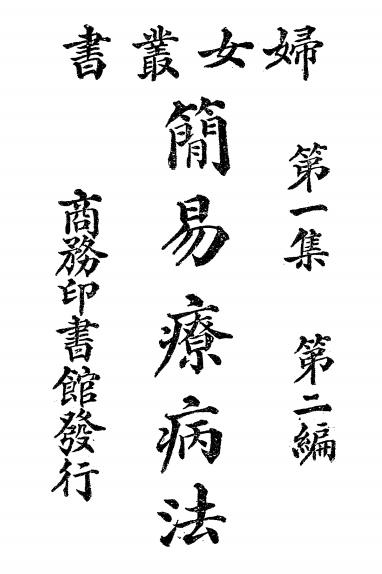 婦女叢書
第一集 第二編
簡易療病法
商務印書館發行